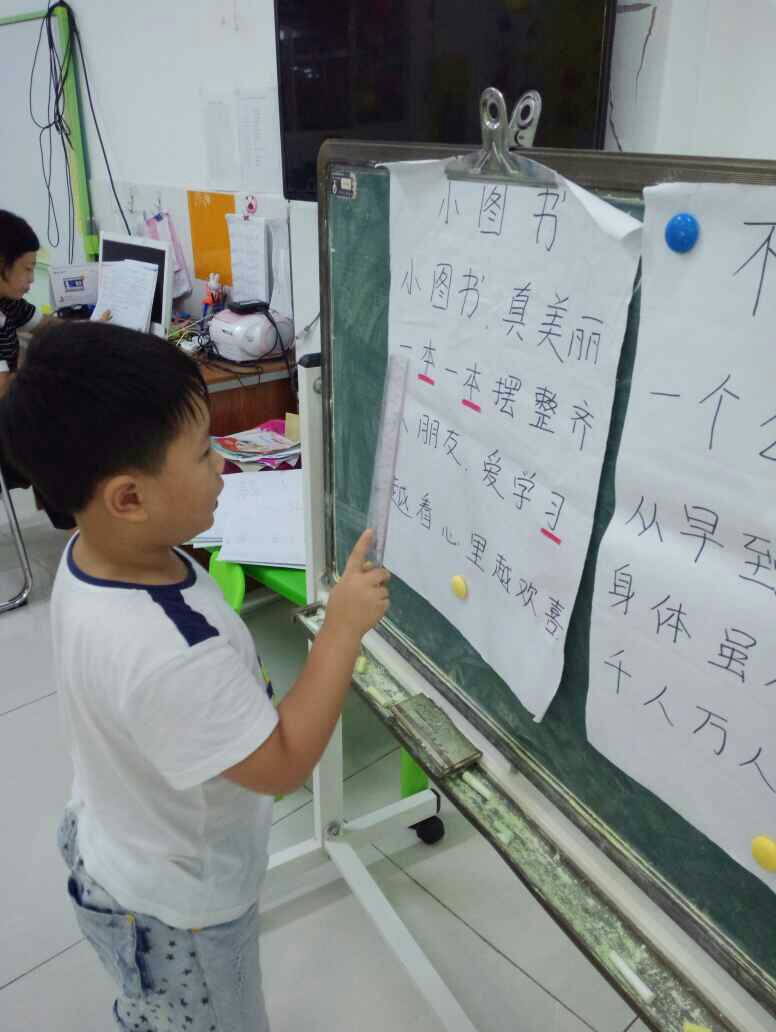 小图书
小图书,真美丽
一本一本摆整齐
小朋友,爱学习
越看心里越欢喜
一个
从早到
身体虽
千人万人